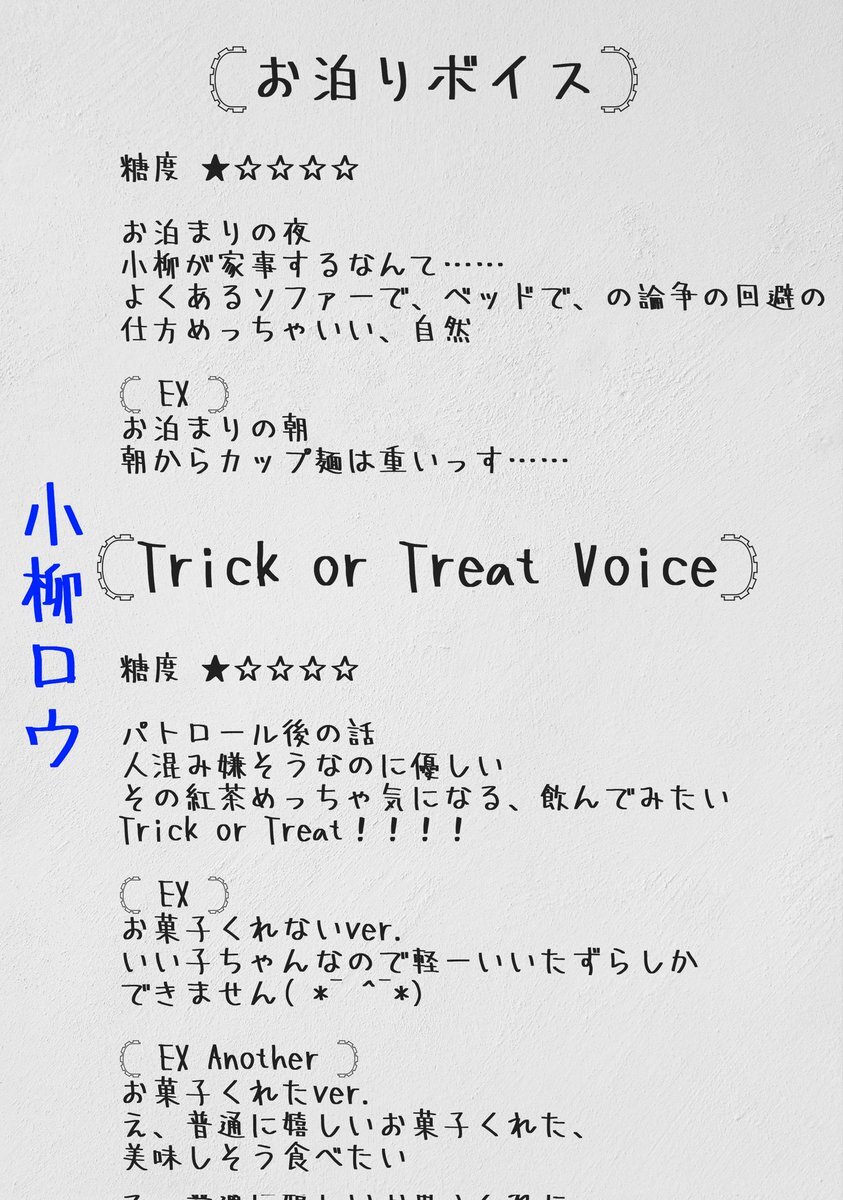 お泊りボイス
糖度 ★☆☆☆☆
お泊まりの夜
小柳が家事するなんて……
よくあるソファーで、ベッドで、の論争の回避の
仕方めっちゃいい、自然
EX
お泊まりの朝
朝からカップ麺は重いっす……
小柳ロウ
Trick or Treat Voice
糖度 ★☆☆☆☆
パトロール後の話
人混み嫌そうなのに優しい
その紅茶めっちゃ気になる、飲んでみたい
Trick or Treat！！！！
EX
お菓子くれないver.
いい子ちゃんなので軽ーいいたずらしか
できません(*¯ ^¯*)
EX Another
お菓子くれたver.
え、普通に嬉しいお菓子くれた、
美味しそう食べたい